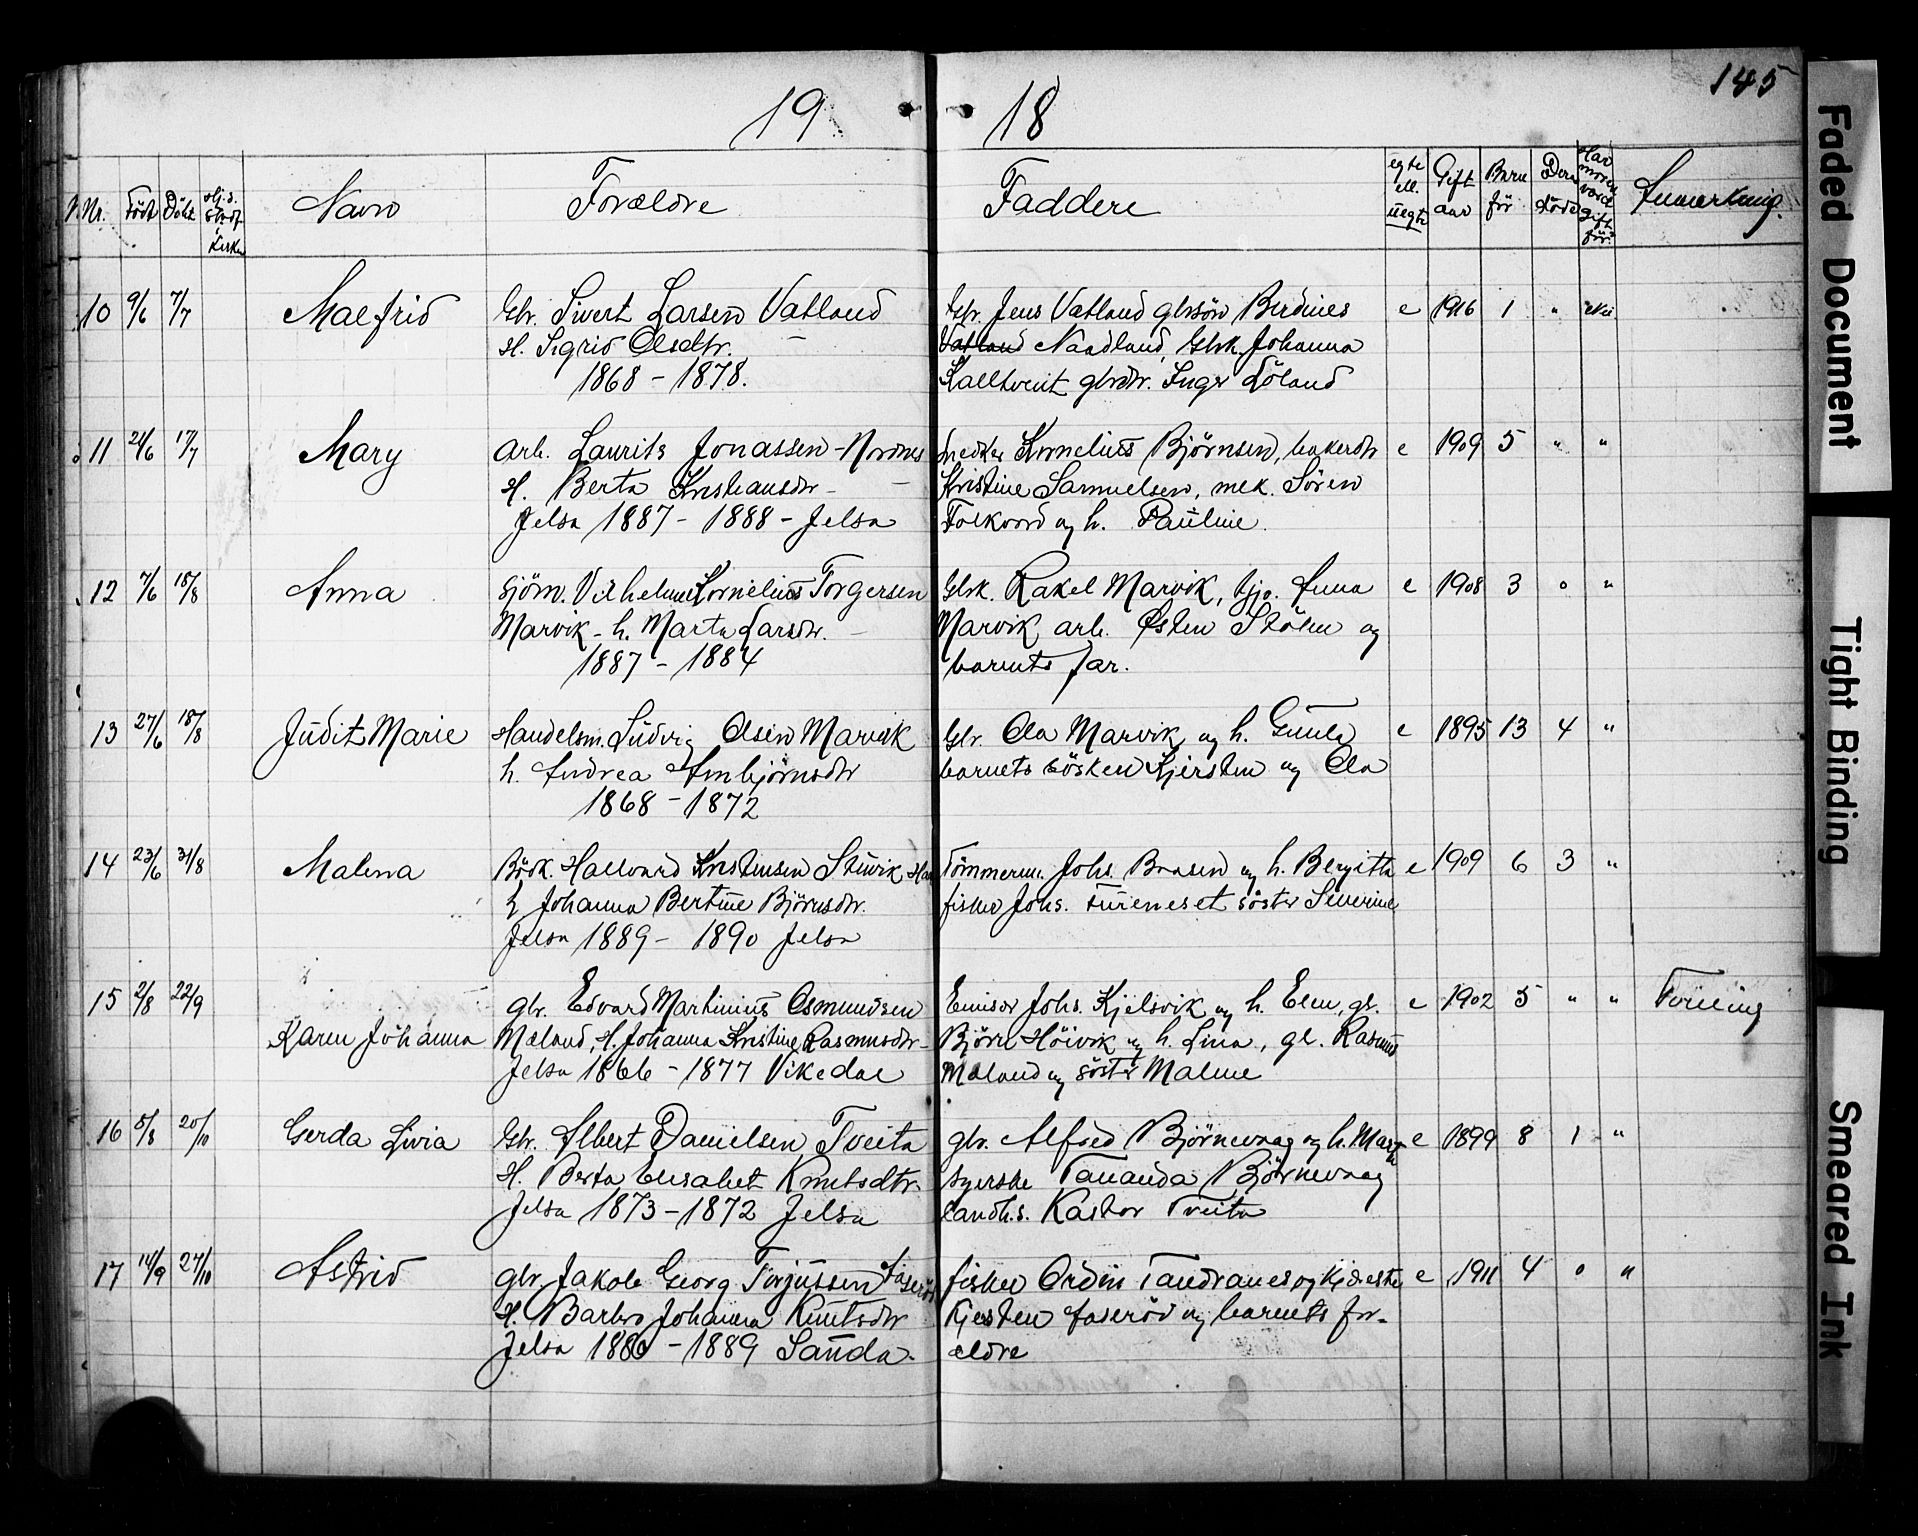 145
19 18
Nr. Födt Döbt Navn Forældre Faddere egte ell. uegte Gift aar Barn för Har moren været gift för? Anmerkning.
10 9/6 7/7 Malfrid Gbr. Sivert Larsen Vatland Gbr. Jens Vatland gbrsön Berdines e 1916 1 " Nei
H. Sigrid Olsdtr. Vatland Naadland, Gbrk. Johanna
1868 - 1878. Kalltveit gbrdtr. Inger Löland
11 24/6 17/7 Mary Arb. Laurits Jonassen - Nordnes Kornelius Björnsen, bakerdtr e 1909 5 " "
H. Berta Kristiansdtr - Kristine Samuelsen, mek. Sören
Jelsa 1887 - 1888 - Jelsa Folkvord og h. Pauline.
12 7/6 18/8 Anna Sjöm. Vilhelm Kornelius Torgersen Gbrk. Rakel Marvik, tjp. Anna e 1908 3 o "
Marvik - h. Marta Larsdtr. Marvik arb. Østen Stölen og
1887 - 1884 barnets far.
13 27/6 18/8 Judit Marie Handelsm. Ludvig Olsen Marvik Gbr. Ola Marvik og h. Gunla e 1895 13 4 "
h. Andrea Arnbjörnsdtr barnets sösken Kjersten og Ola
1868 - 1872
14 23/6 31/8 Malena Bödk. Hallvard Kristensen Stuvik Tömmerm. Johs. Brasen og h. Bergitta e 1909 6 3 "
h Johanna Bertine Björnsdtr. fisker Johs. Tureneset söster Severine
Jelsa 1889 - 1890 Jelsa
15 2/8 22/9 gbr. Edvard Martinius Osmundsen Emisær Johs. Kjelsvik og h. Elen, gb. e 1902 5 " "
Karen Johanna Mæland, H. Johanna Kristine Rasmusdtr - Björn Höivik og h. Lina, gb. Rasmus
Jelsa 1866 - 1877 Vikedal Mæland og söster Malene
16 5/8 20/10 Gerda Livia Gbr. Albert Danielsen Tveita gbr. Alfred Björnevaag og h. Marta e 1899 8 1 "
H. Berta Elisabet Knutsdtr. syerske Tananda Björnevaag
Jelsa 1873 - 1872 Jelsa landh.s. Kastor Tveita
17 14/9 27/10 Astrid gbr. Jakob Georg Torjussen Foseröd fisker Ordin Tandranes og kjæreste e 1911 4 o "
H. Barbro Johanna Knutsdtr Kjersten Foseröd og barnets for-
Jelsa 1886 - 1889 Sauda. ældre
Faded Document
Tight Binding
Smeared Ink